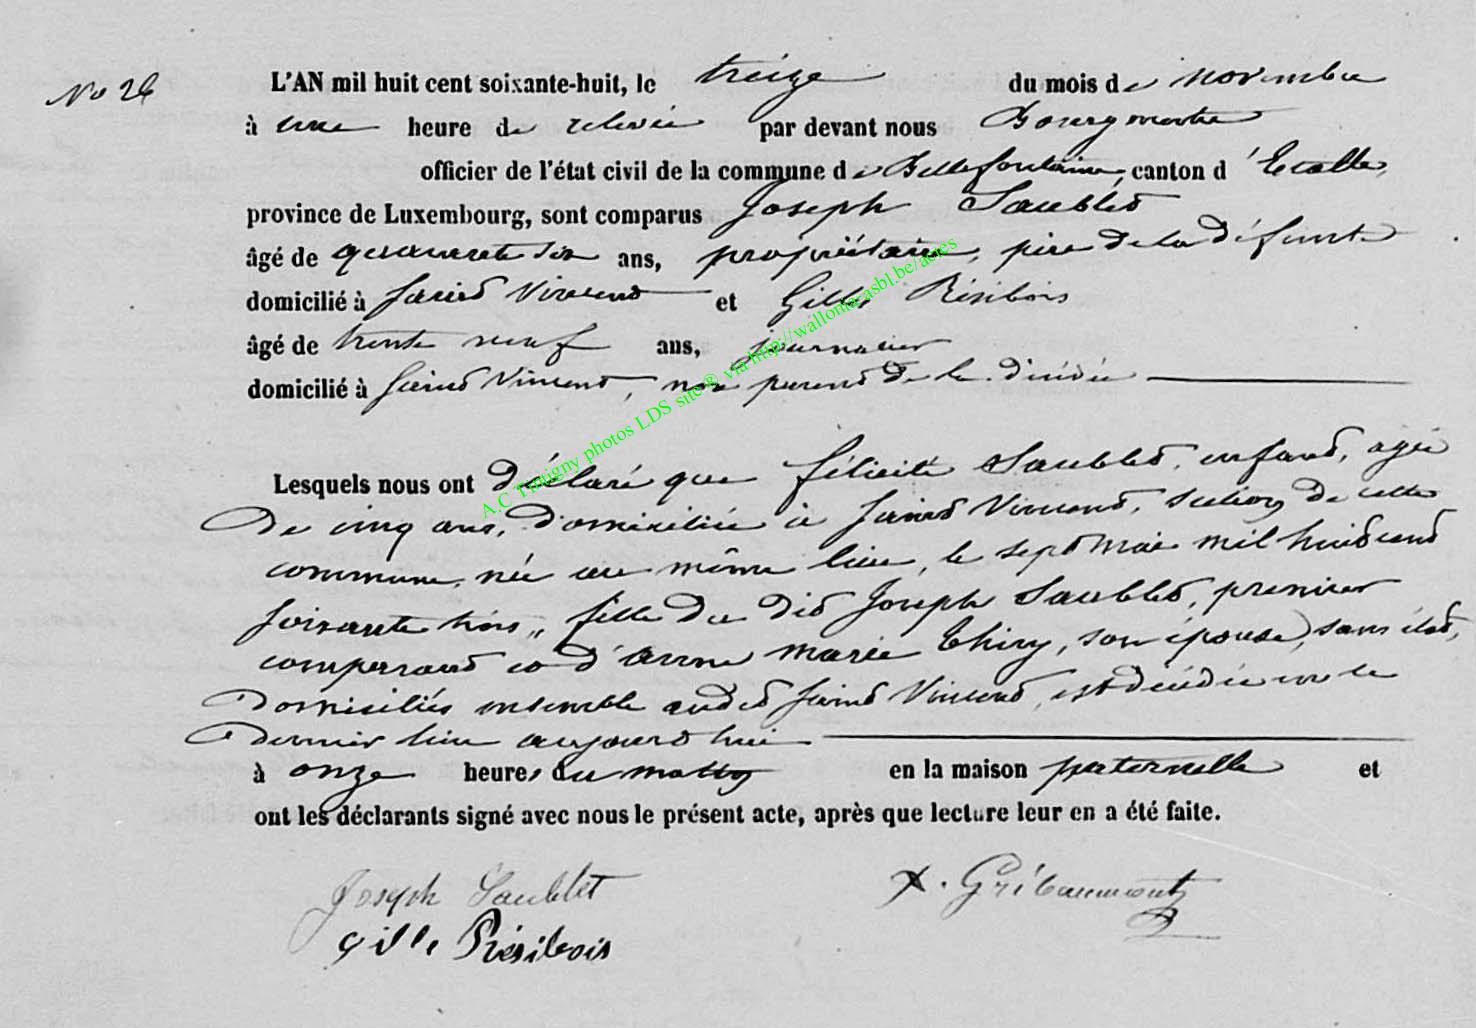 No 26
L'AN mil huit cent soixante-huit, le treize du mois de novembre
à une heure de relevée par devant nous Bourgmestre
officier de l'état civil de la commune de Bellefontaine, canton d'Etalle,
province de Luxembourg, sont comparus Joseph Saublet
âgé de quarante six ans, propriétaire, père de la défunte
domicilié à Saint Vincent et Gilles Résibois
âgé de trente neuf ans, journalier
domicilié à Saint Vincent, non parent de la décédée
Lesquels nous ont déclaré que félicité Saublet, enfant, agée
de cinq ans, domiciliée à Saint Vincent, section de cette
commune, née au même lieu, le sept mai mil huit cent
soixante trois, fille du dit Joseph Saublet, premier
comparant et d'anne marie Thiry, son épouse, sans état,
domiciliés ensemble audit Saint Vincent, est décédée en ce
dernier lieu aujourd'hui
à onze heures du matin en la maison paternelle et
ont les déclarants signé avec nous le présent acte, après que lecture leur en a été faite.
Joseph Saublet
X. Gribaumont
Gille Résibois
A.C Tintigny photos LDS site® via http://wallonia-asbl.be/actes